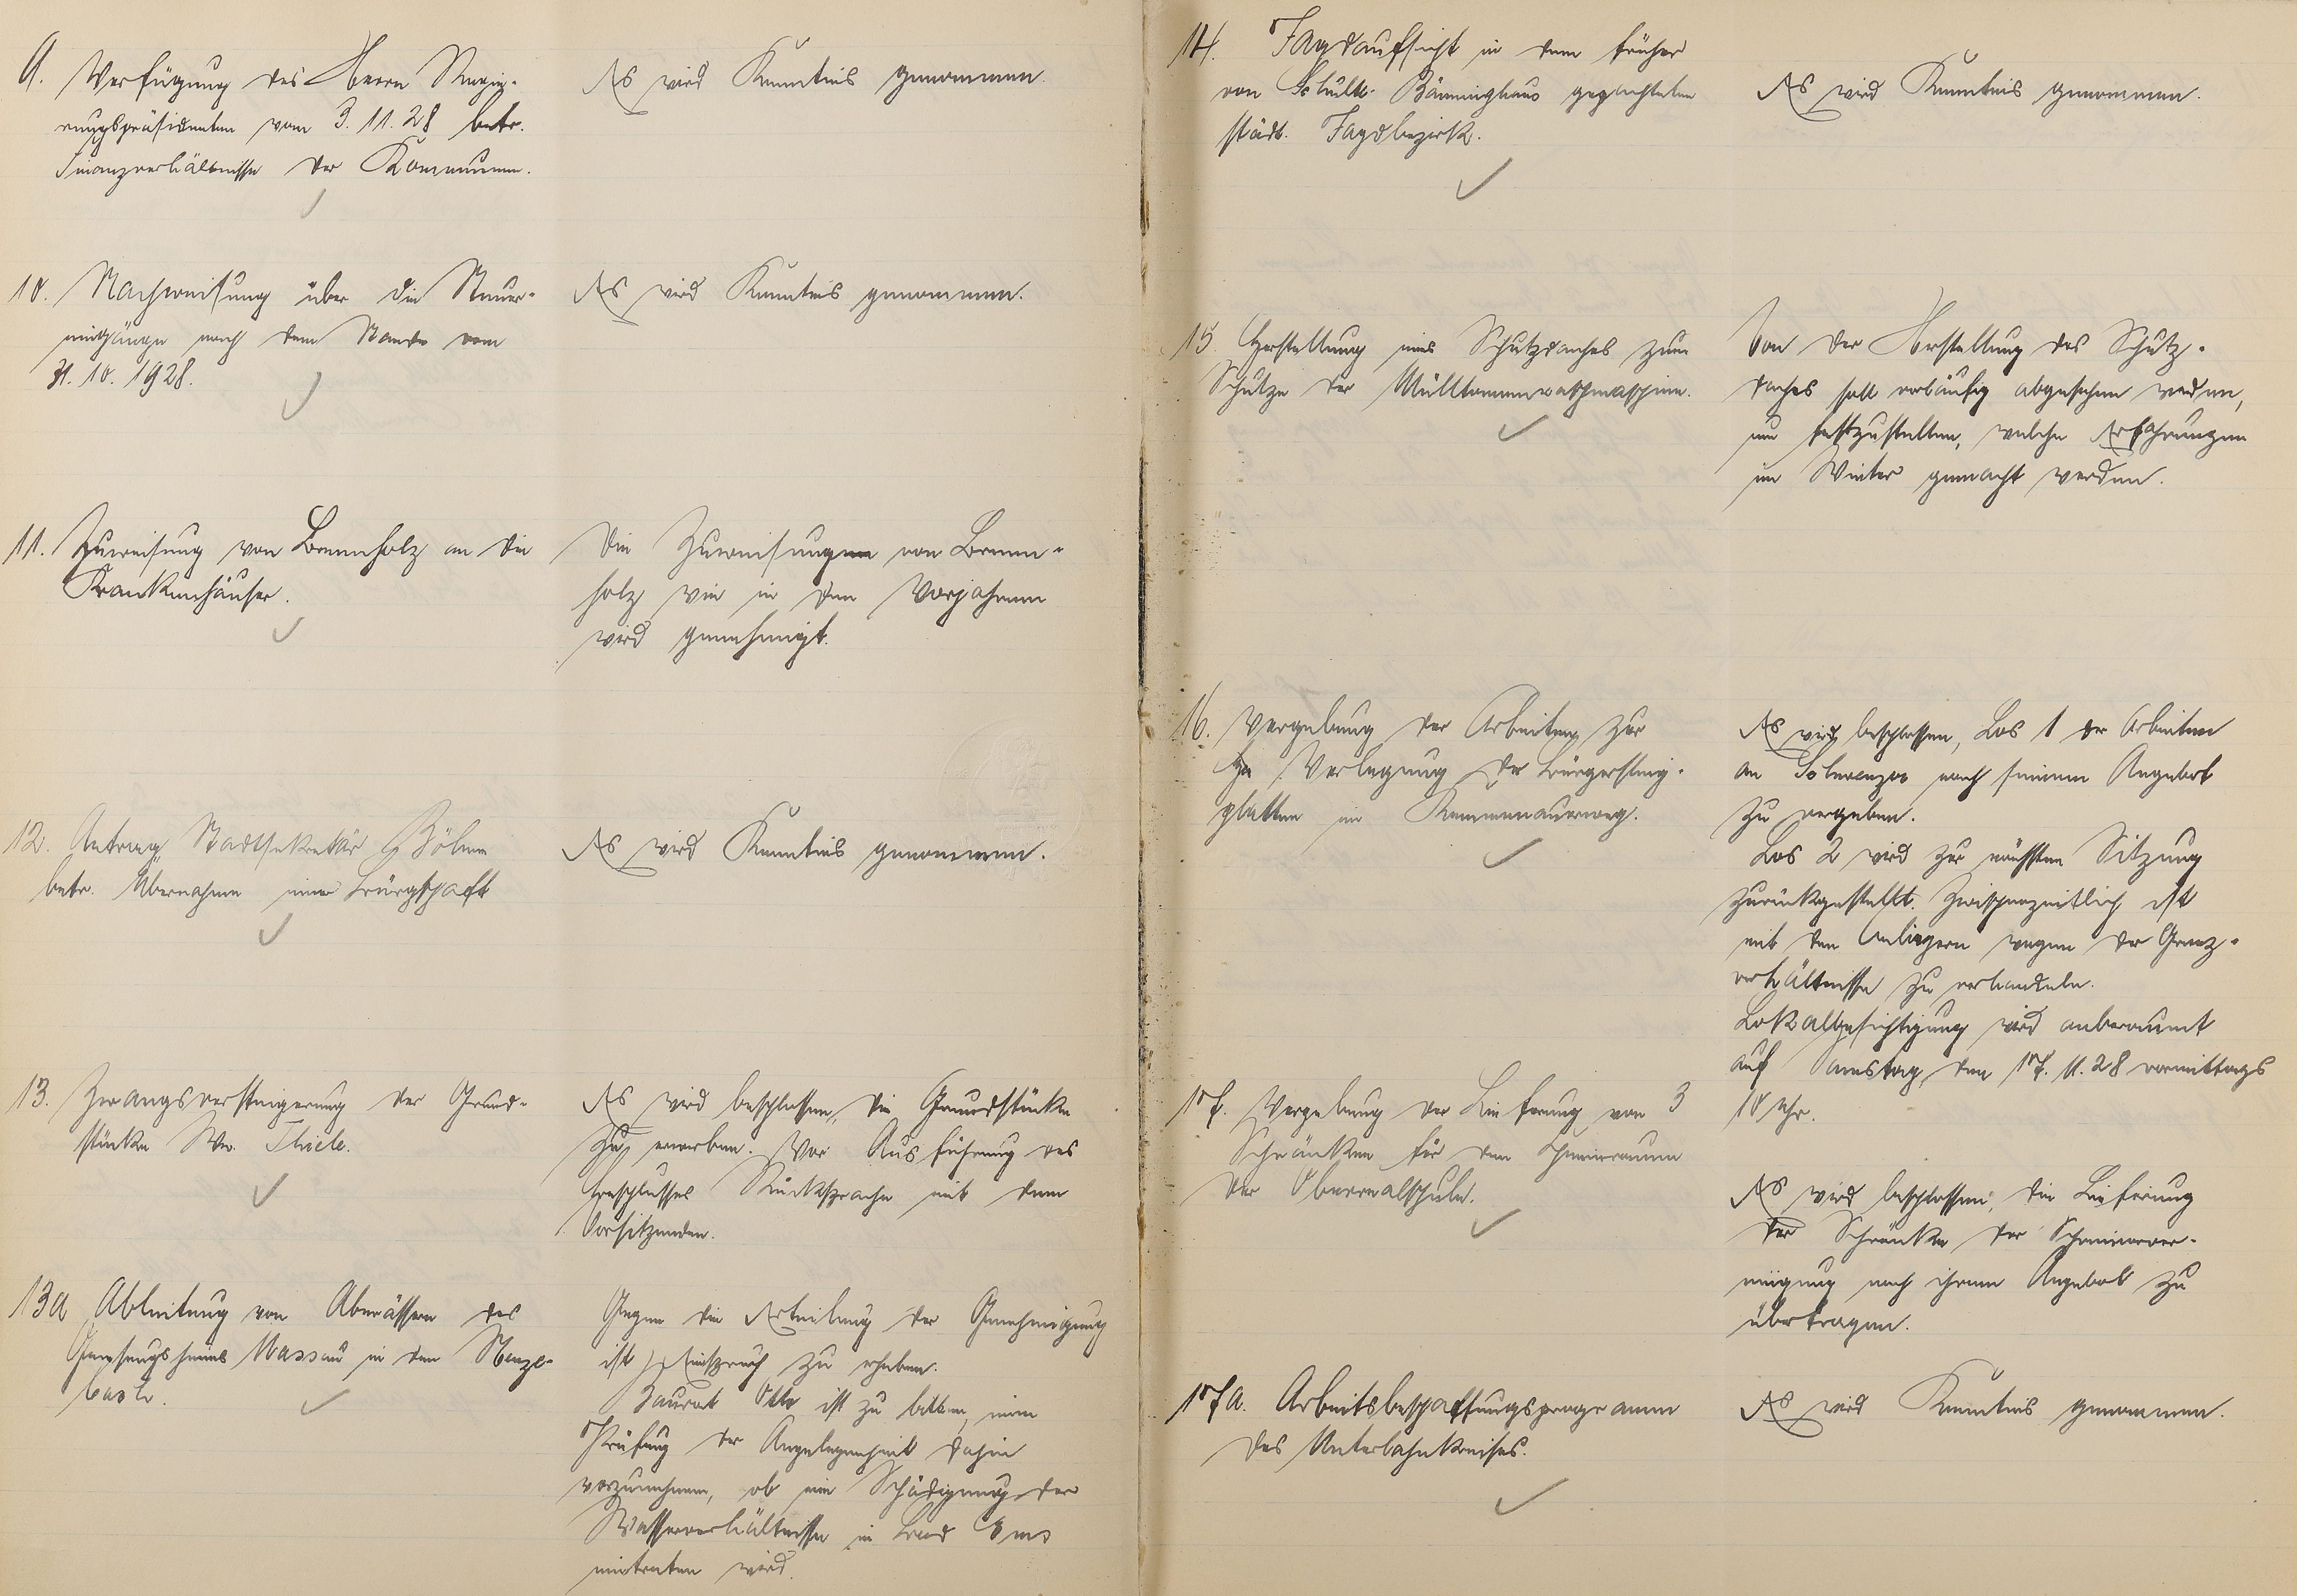 9. Verfügung des Herrn Regie-
rungspräsidenten vom 3.11.28 betr.
Finanzverhältnisse der Kommunen.
Es wird Kenntnis genommen.
10. Nachweisung über die Steuer-
eingänge nach dem Stande vom
31.10.1928.
Es wird Kenntnis genommen.
11. Zuweisung von Brennholz an die
Krankenhäuser.
Die Zuweisungen von Brenn-
holz wie in den Vorjahren
wird genehmigt.
12. Antrag Stadtsekretär
betr. Übernahme einer Bürgschaft
Es wird Kenntnis genommen.
13. Zwangsversteigerung der Grund-
stücke Ww. Thiele.
Es wird beschlossen, die Grundstücke
zu erwerben. Vor Ausführung des
Beschlusses Rücksprache mit dem
Vorsitzenden.
13a Ableitung von Abwässern des
Genesungsheims Nassau in den
bach.
Gegen die Erteilung der Genehmigung
ist Einspruch zu erheben.
Baurat Otto ist zu bitten, eine
Prüfung der Angelegenheit dahin
vorzunehmen, ob eine Schädigung der
Wasserverhältnisse in Bad Ems
eintreten wird.
14. Jagdaufsicht in dem früher
von Schulte-Bäuminghaus gepachteten
städt. Jagdbezirk.
Es wird Kenntnis genommen.
15. Herstellung eines Schutzdaches zum
Schutze der Mülltonnenwaschmaschine.
Von der Herstellung des Schutz-
daches soll vorläufig abgesehen werden,
um festzustellen, welche Erfahrungen
im Winter gemacht werden.
16. Vergebung der Arbeiten zur
Verlegung der Bürgersteig-
platten im Kemmenauerweg.
Es wird beschlossen, Los 1 der Arbeiten
an nach seinem Angebot
zu vergeben.
Los 2 wird zur nächsten Sitzung
zurückgestellt. Zwischenzeitlich ist
mit den Anliegern wegen der Grenz-
verhältnisse zu verhandeln.
Lokalbesichtigung wird anberaumt
auf Samstag, den 17.11.28 vormittags
10 Uhr.
17. Vergebung der Lieferung von 3
Schränken für den Chemieraum
der Oberrealschule.
Es wird beschlossen, die Lieferung
der Schränke der Schreinerver-
einigung nach ihrem Angebot zu
übertragen.
17a. Arbeitsbeschaffungsprogramm
des Unterlahnkreises.
Es wird Kenntnis genommen.